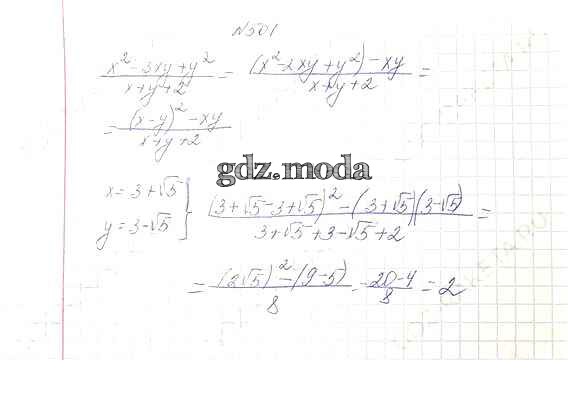 N501
x² - 3xy + y² / x + y + 2 = (x² - 2xy + y²) - xy / x + y + 2 =
= (x - y)² - xy / x + y + 2
gdz.moda
x = 3 + √5
y = 3 - √5 } (3 + √5 - 3 + √5)² - (3 + √5)(3 - √5) / 3 + √5 + 3 - √5 + 2 =
= (2√5)² - (9 - 5) / 8 = 20 - 4 / 8 = 2